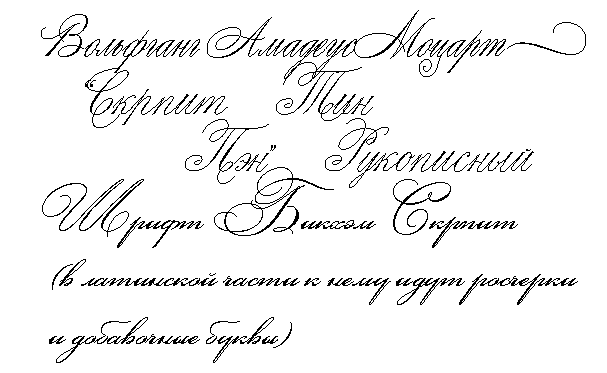 Вольфганг Амадеус Моцарт
"Скрпит Тин
Пэн" Рукописный
Шрифт Бикхэм Скрпит
(в латинской части к нему идут росчерки
и добавочные буквы)